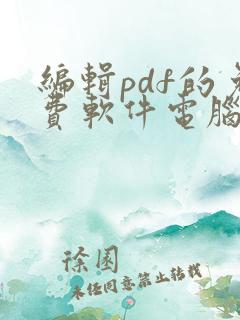 編輯pdf的免
費軟件電腦
徐图
未任同意禁止转载